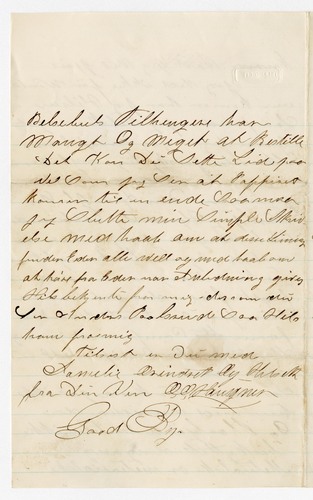 Belsebub Tilhengere har
Mangt Og Meget at Bestille
Det Kan Du Sette Lid paa
det som jeg Ser at Pappiret
kommer til en ende saa maa
jeg Slutte min Simple Skriv
else med haab om at disse Linier
finder Eder alle vell og med haab om
at höre fra Eder naar Anledning gives
Hils bekjente fra mig dersom du
Ser Anders Paalsrud saa Hils
ham fra mig
Tilsist er Du med
Familie Hilset Og Elsket
fra Din Ven
Good By